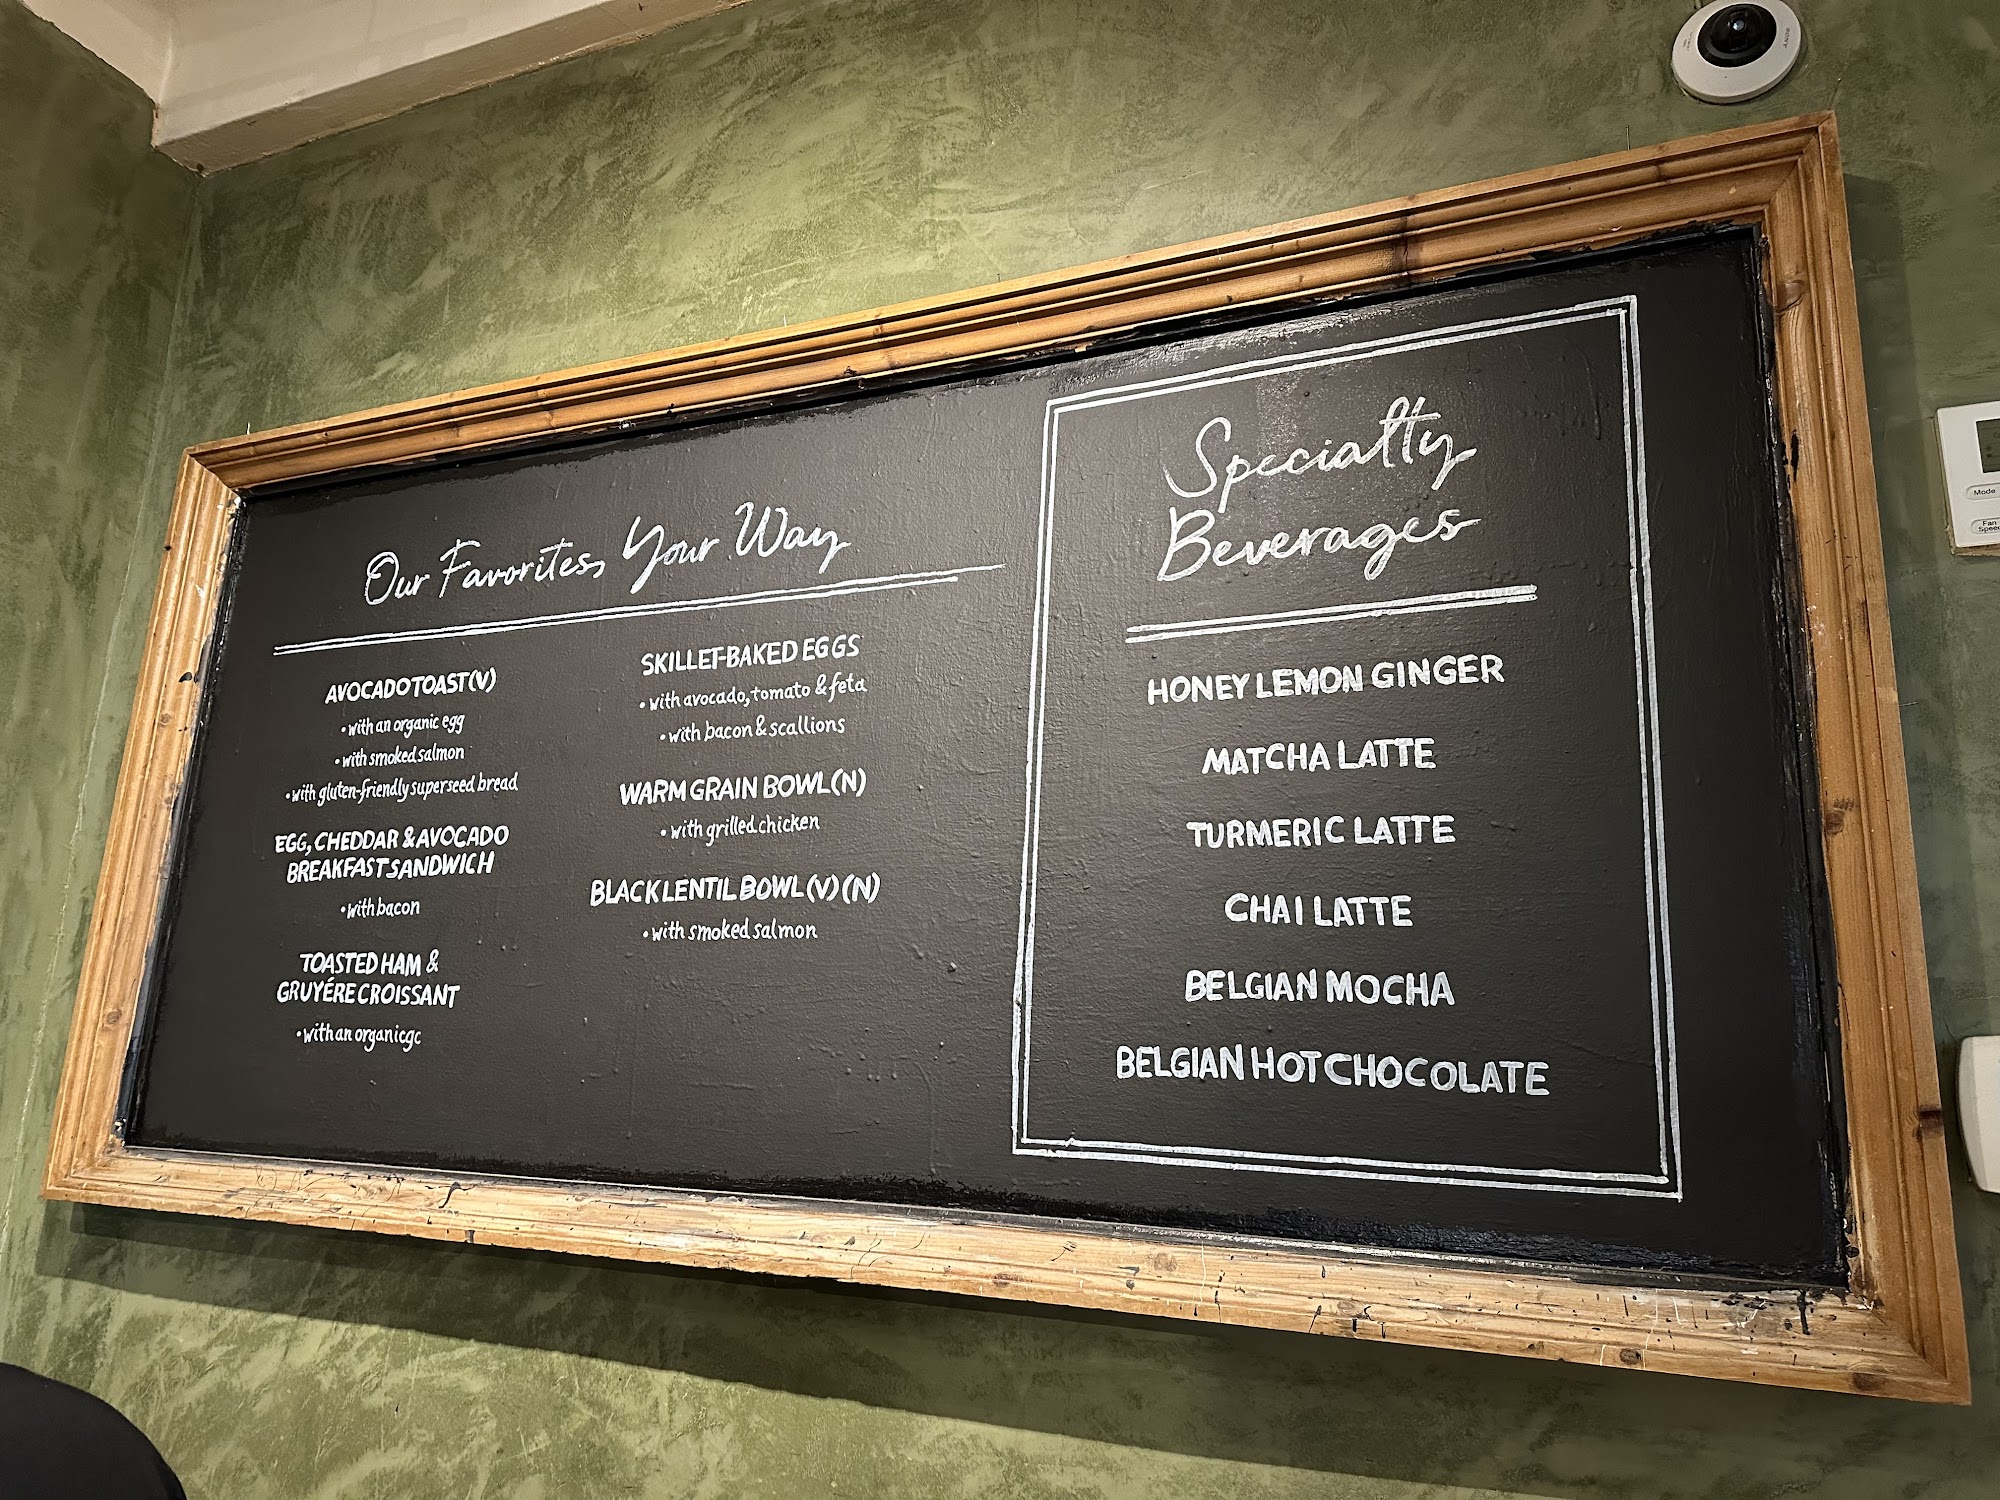 Our Favorites, Your Way
AVOCADO TOAST (V)
• with an organic egg
• with smoked salmon
• with gluten-friendly superseed bread
EGG, CHEDDAR & AVOCADO
BREAKFAST SANDWICH
• with bacon
TOASTED HAM &
GRUYÉRE CROISSANT
• with an organicgc
SKILLET-BAKED EGGS
• with avocado, tomato & feta
• with bacon & scallions
WARM GRAIN BOWL (N)
• with grilled chicken
BLACK LENTIL BOWL (V) (N)
• with smoked salmon
Specialty
Beverages
HONEY LEMON GINGER
MATCHA LATTE
TURMERIC LATTE
CHAI LATTE
BELGIAN MOCHA
BELGIAN HOT CHOCOLATE
SONY
Mode
Fan
Speed